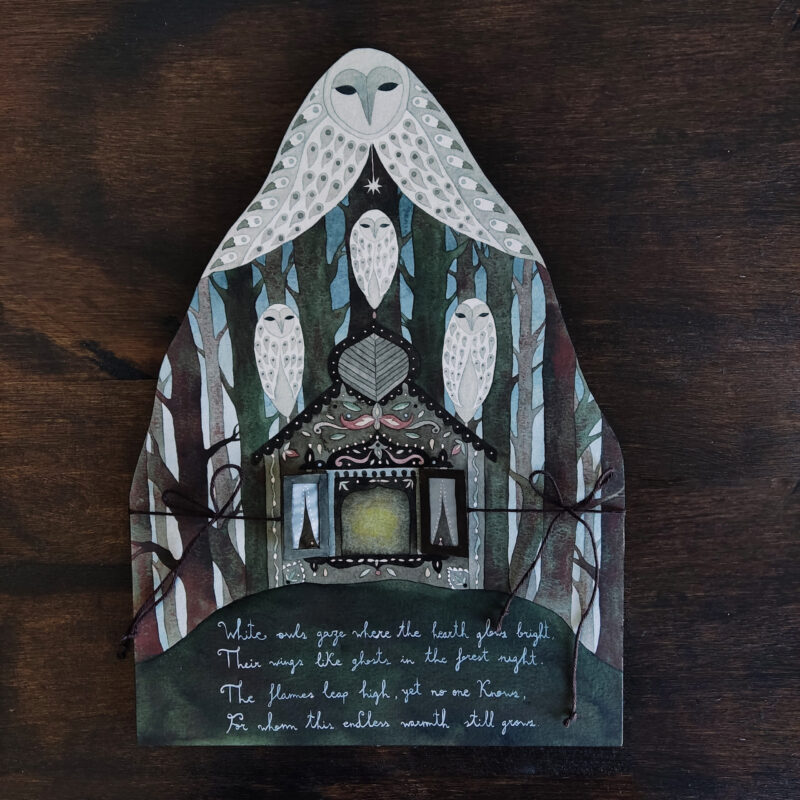 White owls gaze where the hearth glows bright.
Their wings like ghosts in the forest night.
The flames leap high, yet no one Knows,
For whom this endless warmth still grows.